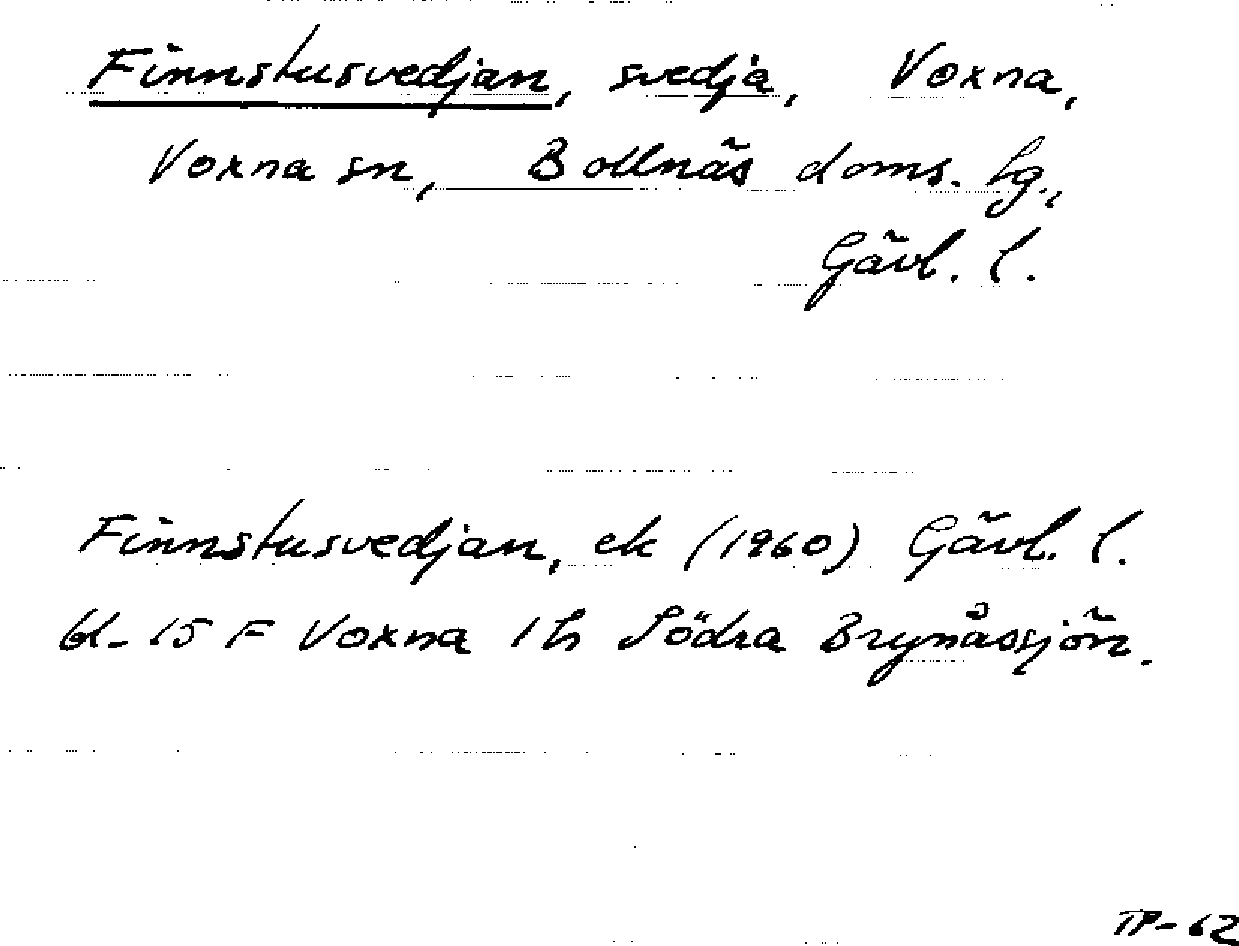 Finnstusvedjan, svedja, Voxna,
Voxna sn, Bollnäs doms. lg.,
Gävl. l.
Finnstusvedjan, ek (1960) Gävl. l.
bl. 15 F Voxna 1 h Södra Brynåssjön.
TP-62